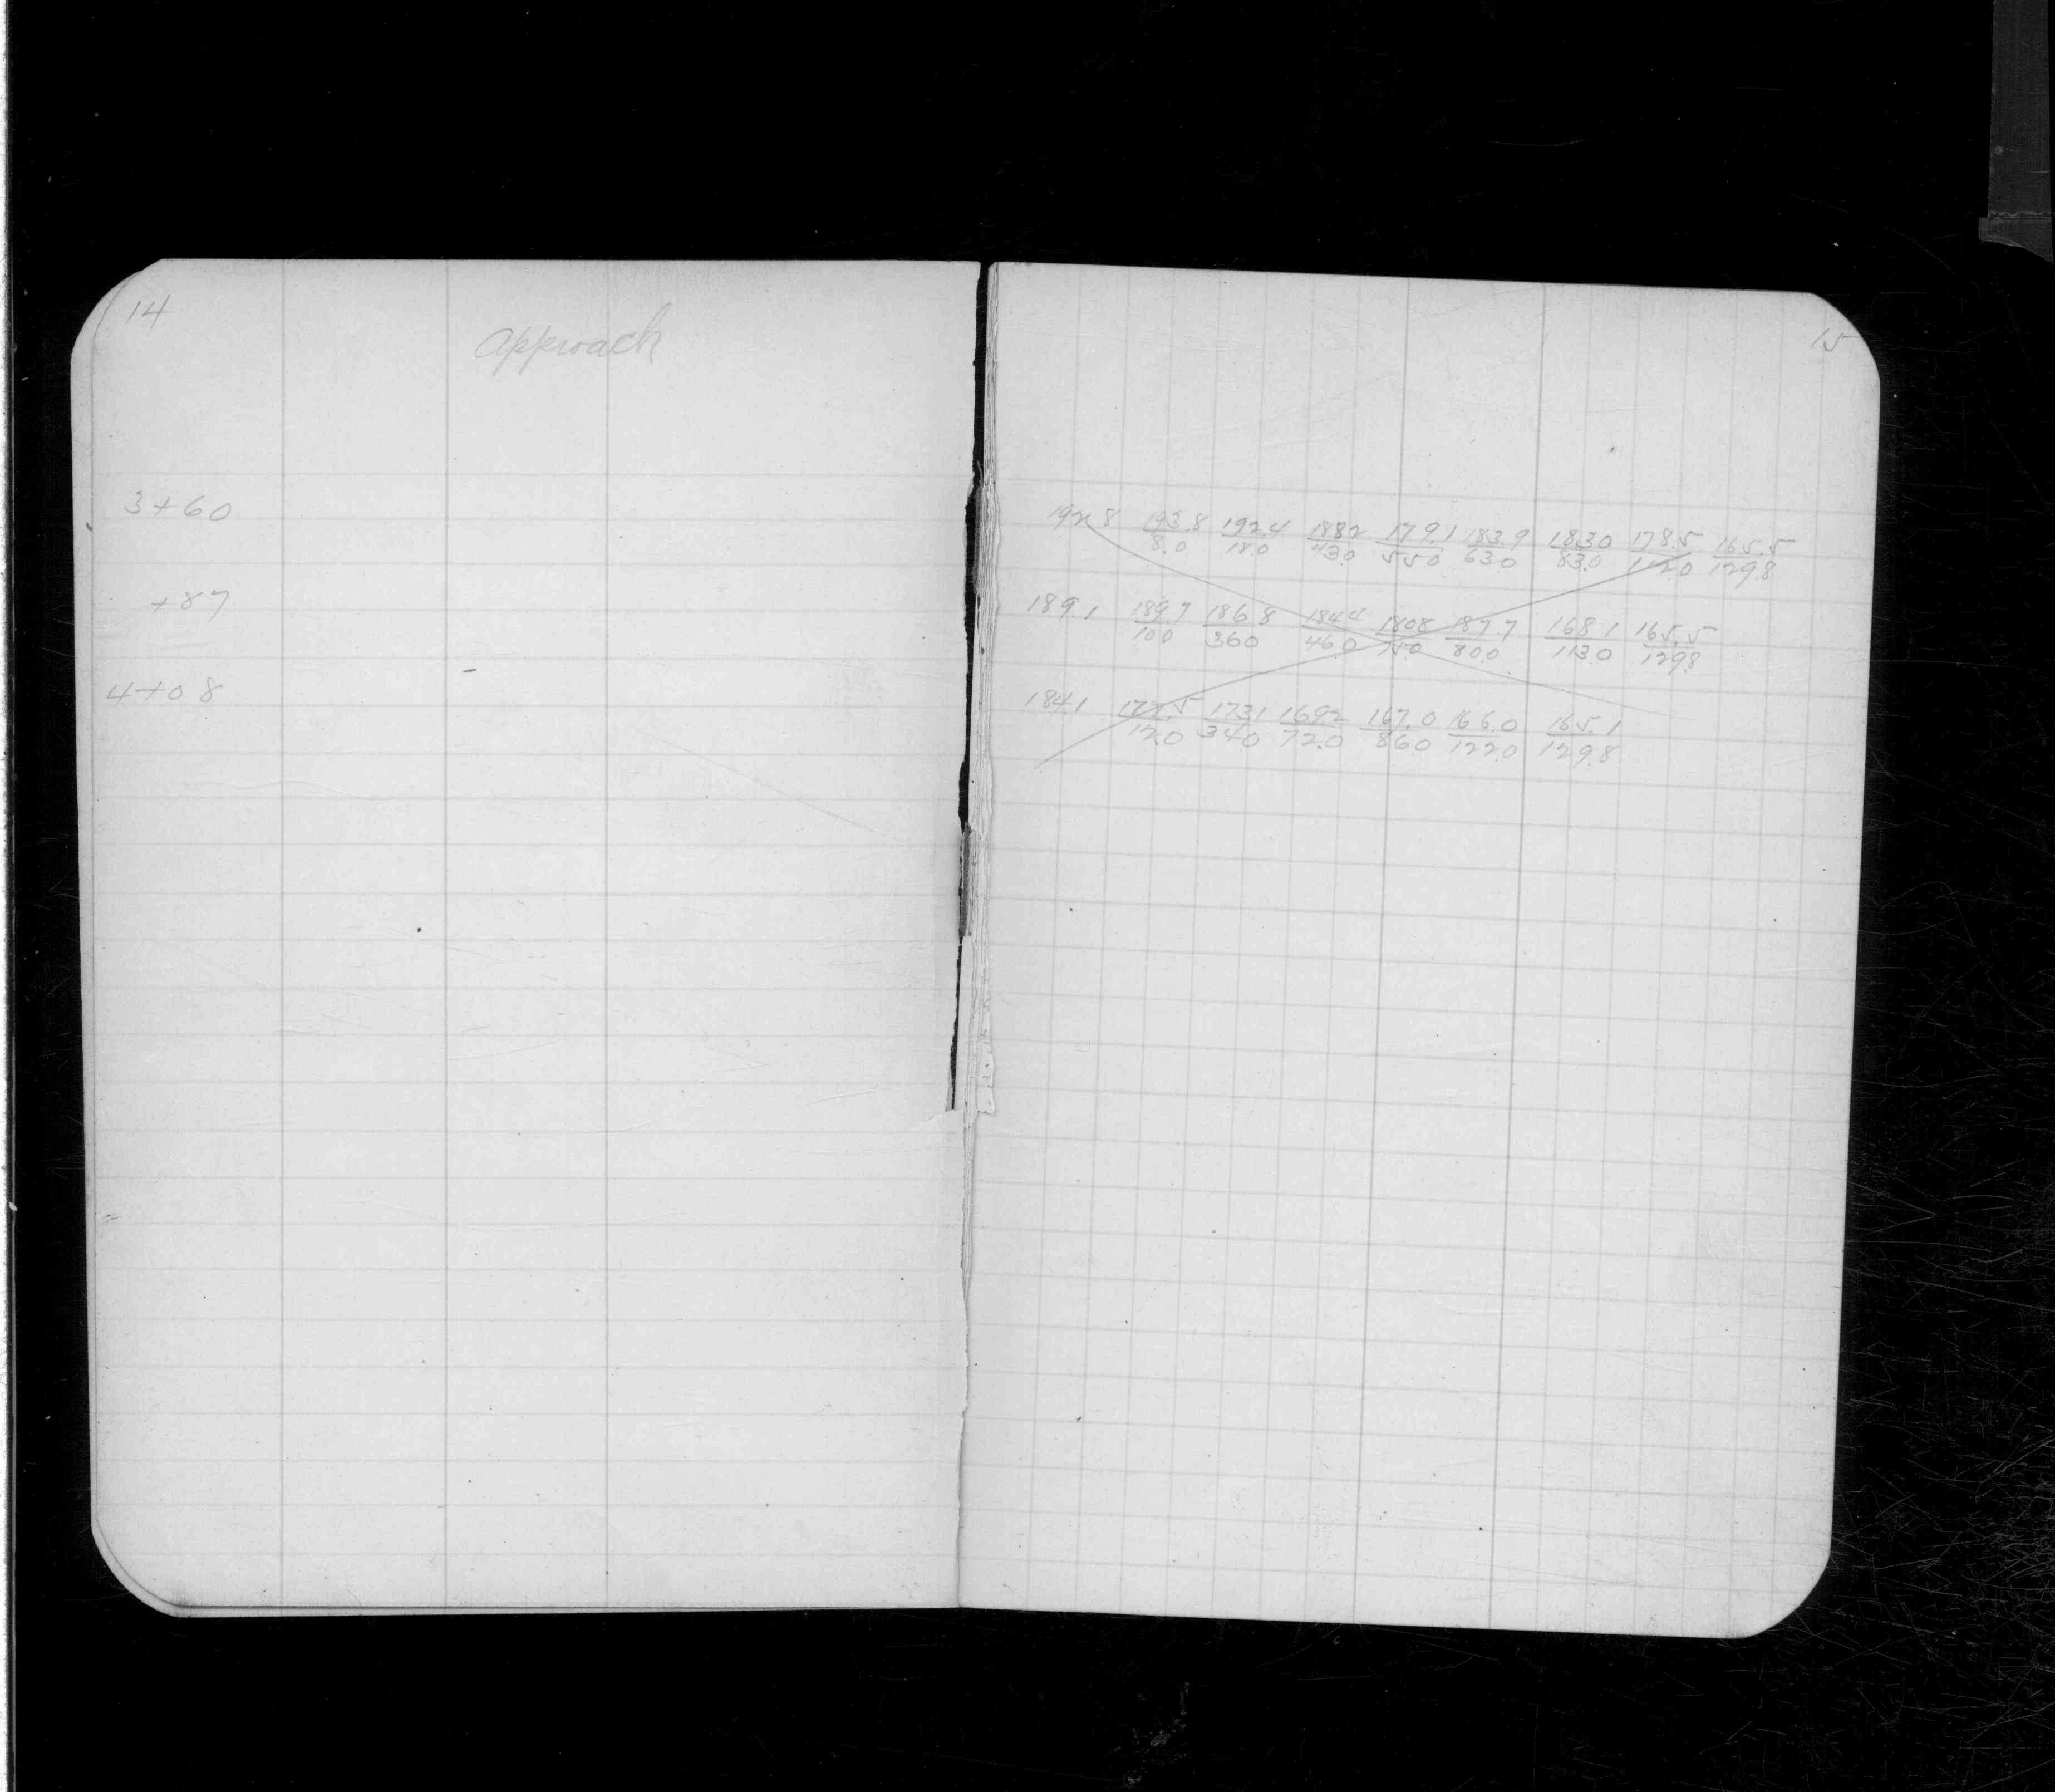 14
Approach
3+60
+87
4+08
15
192.8 193.8/8.0 192.4/18.0 188.2/43.0 179.1/55.0 183.9/63.0 183.0/83.0 178.5/112.0 165.5/129.8
189.1 189.7/10.0 186.8/36.0 184.4/46.0 180.8/75.0 187.7/80.0 168.1/113.0 165.5/129.8
184.1 177.5/12.0 173.1/34.0 169.2/72.0 167.0/86.0 166.0/122.0 165.1/129.8